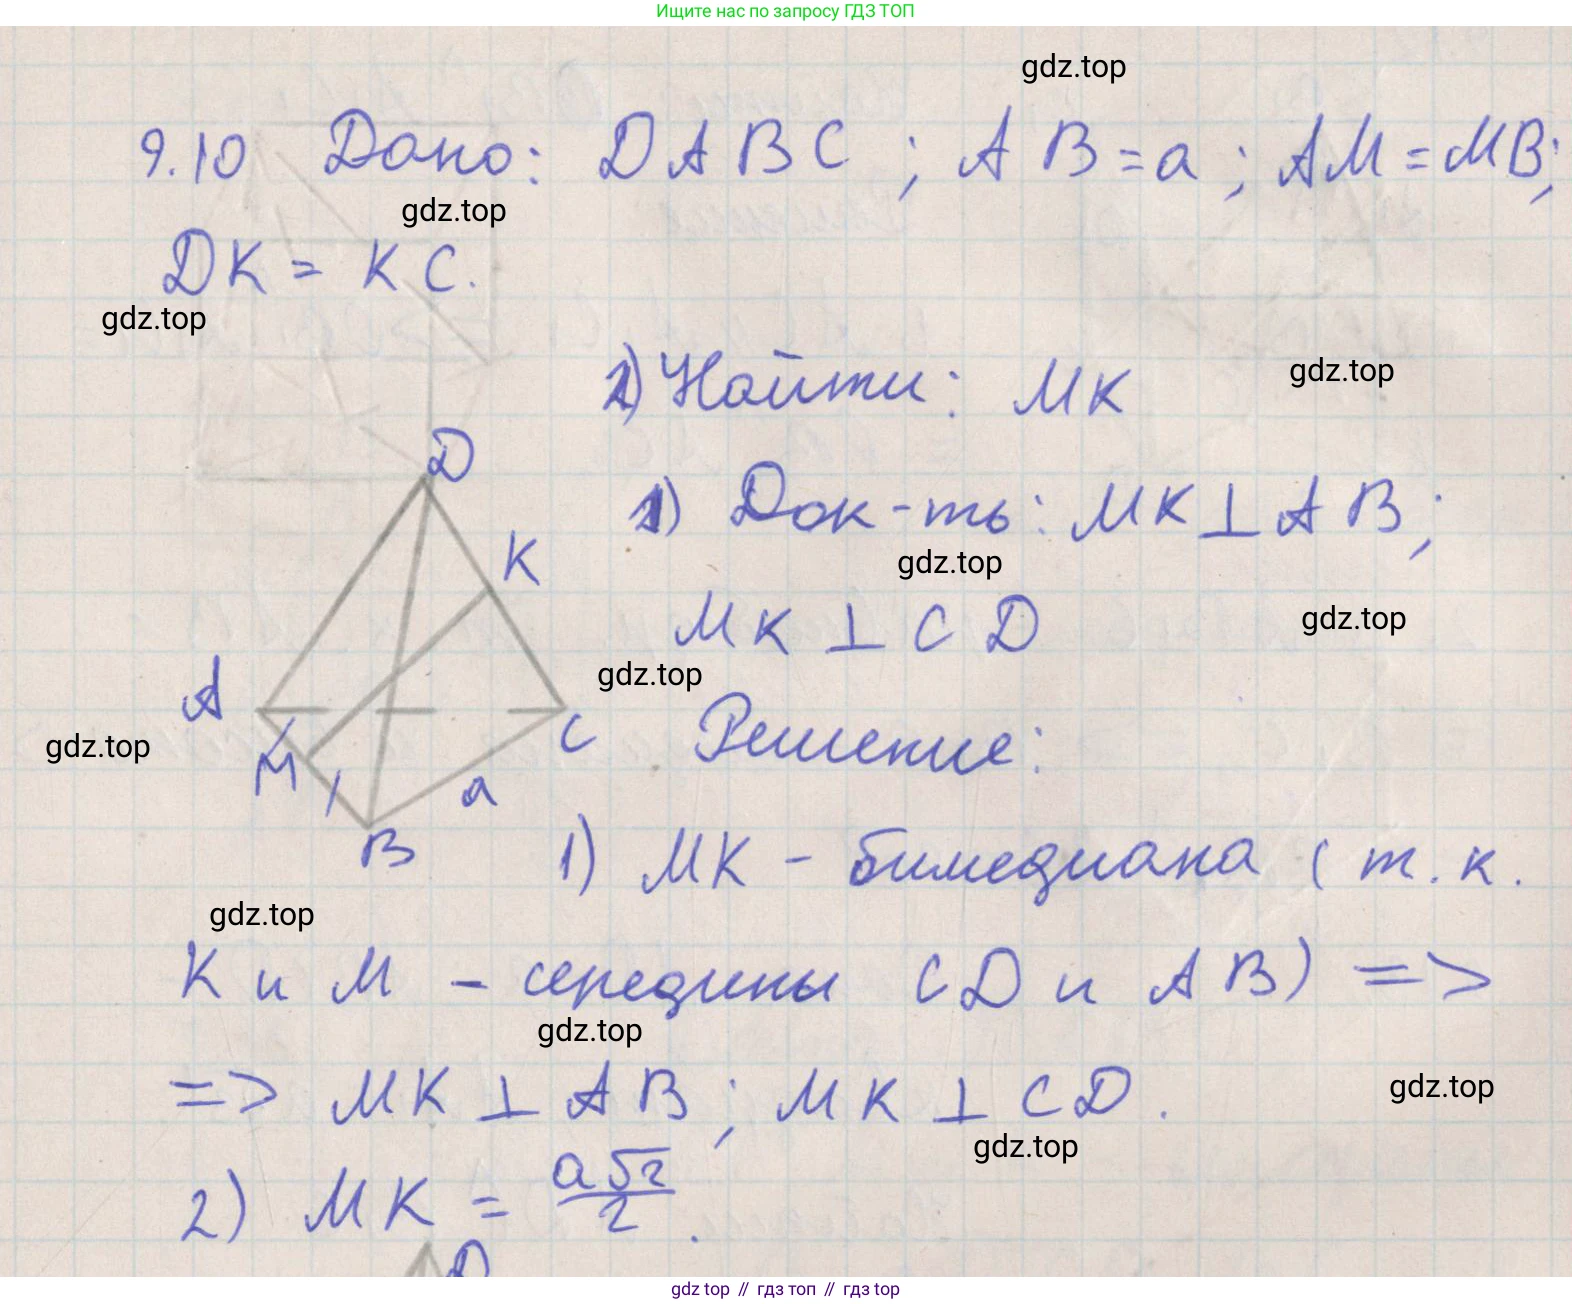 Ищите нас по запросу ГДЗ ТОП
gdz.top
9.10 Дано: DABC; AB=a; AM=MB;
gdz.top
DK = KC.
gdz.top
2) Найти: MK
gdz.top
D
1) Док-ть: MK⊥AB;
K
gdz.top
MK ⊥ CD
gdz.top
gdz.top
A
C
Решение:
gdz.top
M
a
B
1) MK - бимедиана (т.к.
gdz.top
K и M - середины CD и AB) =>
gdz.top
=> MK ⊥ AB; MK ⊥ CD.
gdz.top
gdz.top
2) MK = a√2/2.
D
gdz top // гдз топ // gdz top